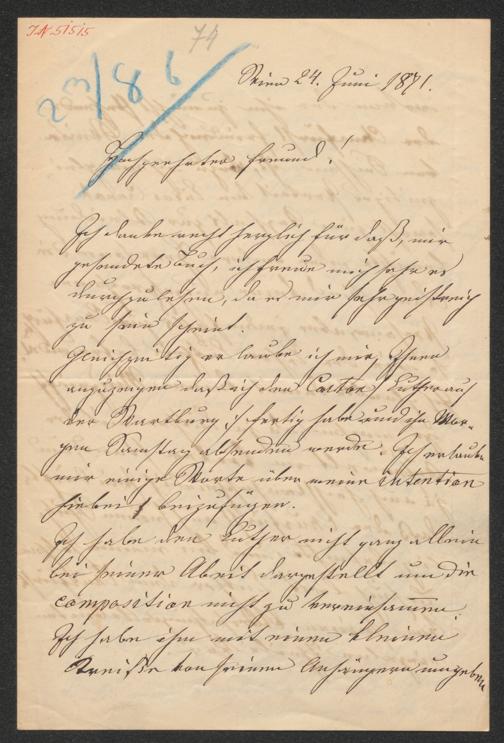 I.N. 51515
74
23/86
Wien 24. Juni 1871.
Hochgeehrter Freund!
Ich danke recht herzlich für daß, mir
gesendete Buch, ich freue mich sehr es
durchzulesen, da es mir sehr geistreich
zu sein scheint.
Gleichzeitig erlaube ich mir, Ihnen
anzuzeigen daß ich den Carton /: Luther auf
der Wartburg :/ fertig habe und ihn Mor-
gen Samstag absenden werde. Ich erlaube
mir einige Worte über meine intention
hiebei beizufügen.
Ich habe den Luther nicht ganz allein
bei seiner Abeit dargestellt um die
composition nicht zu vereinsamen.
Ich habe ihm mit einem kleinen
Kreiße von seinen Anhängern umgeben